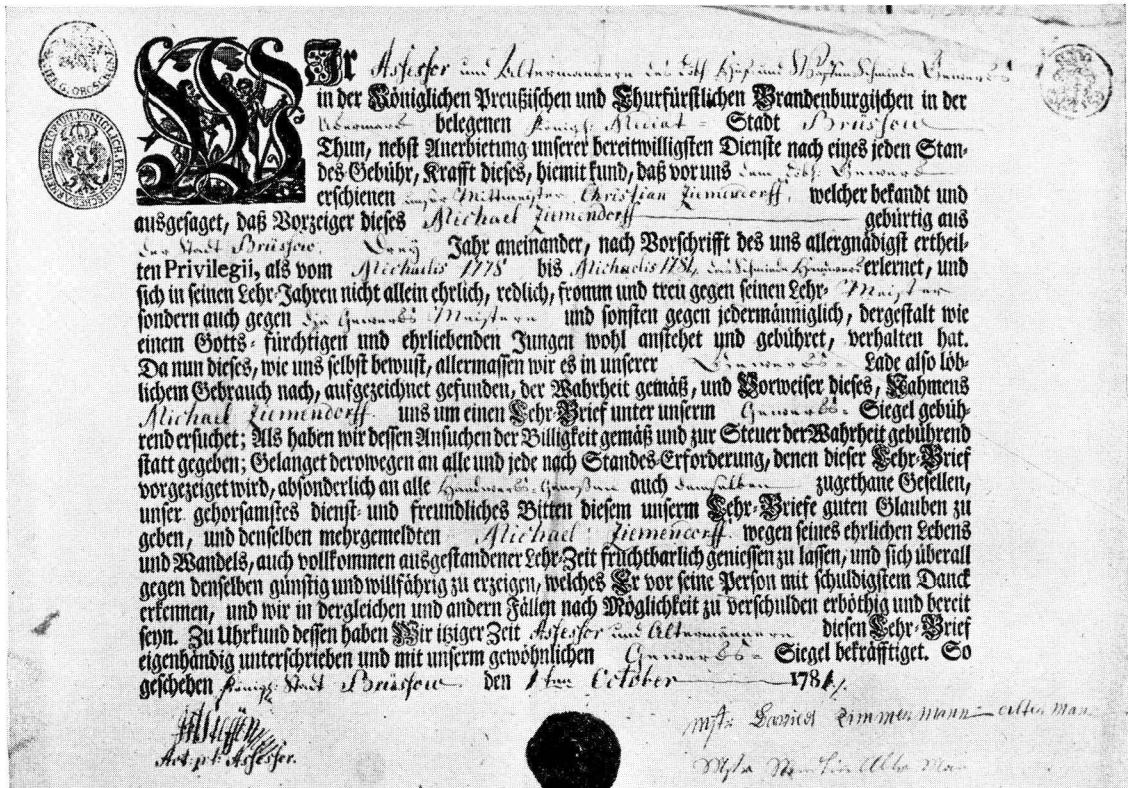 Wir Assessor und Altermannere des Löbl. Huf und Waffen Schmiede Gewercks
in der Königlichen Preußischen und Churfürstlichen Brandenburgischen in der
Uckermarck belegenen Königl. Stadt Brüssow
Thun, nebst Anerbietung unserer bereitwilligsten Dienste nach eines jeden Stan-
des Gebühr, Krafft dieses, hiemit kund, daß vor uns dem Löbl. Gewerck
erschienen unser Mittmeister Christian Ziemendorff. welcher bekandt und
ausgesaget, daß Vorzeiger dieses Michael Ziemendorff gebürtig aus
der Stadt Brüssow. Drey Jahr aneinander, nach Vorschrifft des uns allergnädigst ertheil-
ten Privilegii, als vom Michaelis 1778 bis Michaelis 1781, das Schmiede Handwerck erlernet, und
sich in seinen Lehr-Jahren nicht allein ehrlich, redlich, fromm und treu gegen seinen Lehr- Meister
sondern auch gegen die Gewercks Meistern und sonsten gegen jedermänniglich, dergestalt wie
einem Gotts- fürchtigen und ehrliebenden Jungen wohl anstehet und gebühret, verhalten hat.
Da nun dieses, wie uns selbst bewust, allermassen wir es in unserer Gewercks- Lade also löb-
lichem Gebrauch nach, aufgezeichnet gefunden, der Wahrheit gemäß, und Vorweiser dieses, Nahmens
Michael Ziemendorff. uns um einen Lehr-Brief unter unserm Gewercks- Siegel gebüh-
rend ersuchet; Als haben wir dessen Ansuchen der Billigkeit gemäß und zur Steuer der Wahrheit gebührend
statt gegeben; Gelanget derowegen an alle und jede nach Standes-Erforderung, denen dieser Lehr-Brief
vorgezeiget wird, absonderlich an alle Handwercks-Genoßen auch demselben zugethane Gesellen,
unser gehorsamstes dienst- und freundliches Bitten diesem unserm Lehr-Briefe guten Glauben zu
geben, und denselben mehrgemeldten Michael Ziemendorff. wegen seines ehrlichen Lebens
und Wandels, auch vollkommen ausgestandener Lehr-Zeit fruchtbarlich geniessen zu lassen, und sich überall
gegen denselben günstig und willfährig zu erzeigen, welches Er vor seine Person mit schuldigstem Danck
erkennen, und wir in dergleichen und andern Fällen nach Möglichkeit zu verschulden erböthig und bereit
seyn. Zu Uhrkund dessen haben Wir itziger Zeit Assessor und Altermännern diesen Lehr-Brief
eigenhändig unterschrieben und mit unserm gewöhnlichen Gewercks- Siegel bekräfftiget. So
geschehen Königl. Stadt Brüssow den 1ten October 1781.
Assessor.
Mstr. Zimmermann Alterman
Mstr Alter Man